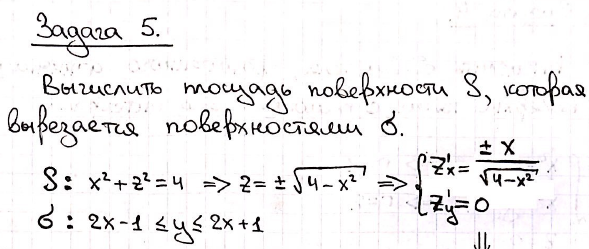 Задача 5.
Вычислить площадь поверхности S, которая
вырезается поверхностями σ.
S: x² + z² = 4 => z = ± √(4-x²) => { z'x = ± x / √(4-x²)
z'y = 0
σ: 2x-1 ≤ y ≤ 2x+1
⇓